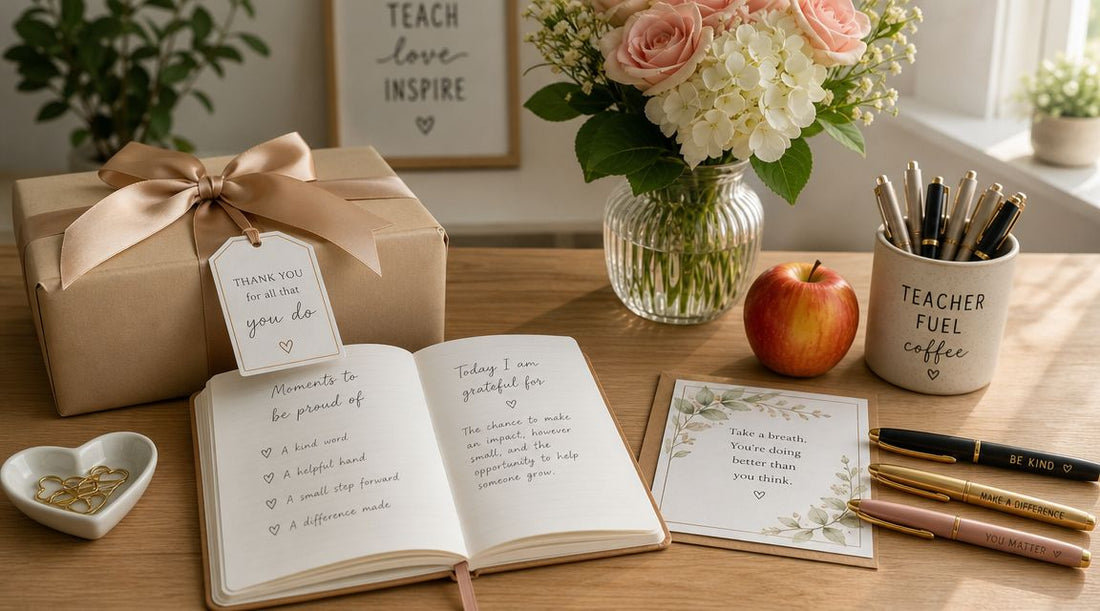 TEACH
love
INSPIRE
THANK YOU
for all that
you do
Moments to
be proud of
A kind word
A helpful hand
A small step forward
A difference made
Today I am
grateful for
The chance to make
an impact, however
small, and the
opportunity to help
someone grow.
Take a breath.
You're doing
better than
you think.
TEACHER
FUEL
coffee
BE KIND
MAKE A DIFFERENCE
YOU MATTER